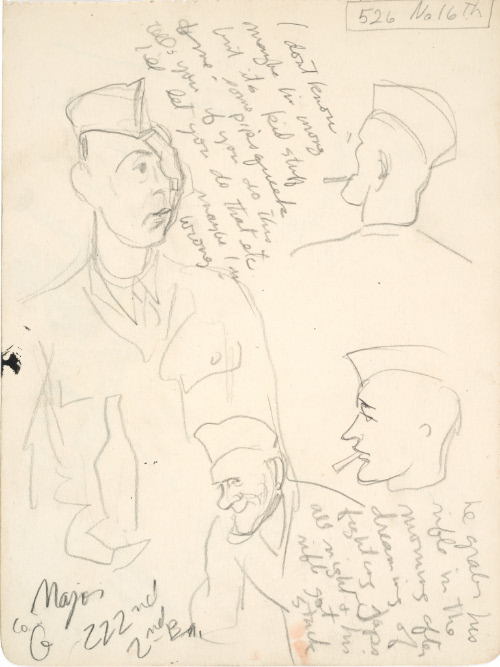 526 No 16th
I dont know
maybe Im wrong
but its kid stuff
some pipsqueek
tells you if you do this
I'll let you do that etc
maybe I'm
wrong
he grabs his
rifle in the
morning after
dreaming of
fighting Japs
all night & his
rifle got
stuck
Major
Co G 222nd
2nd Bn.